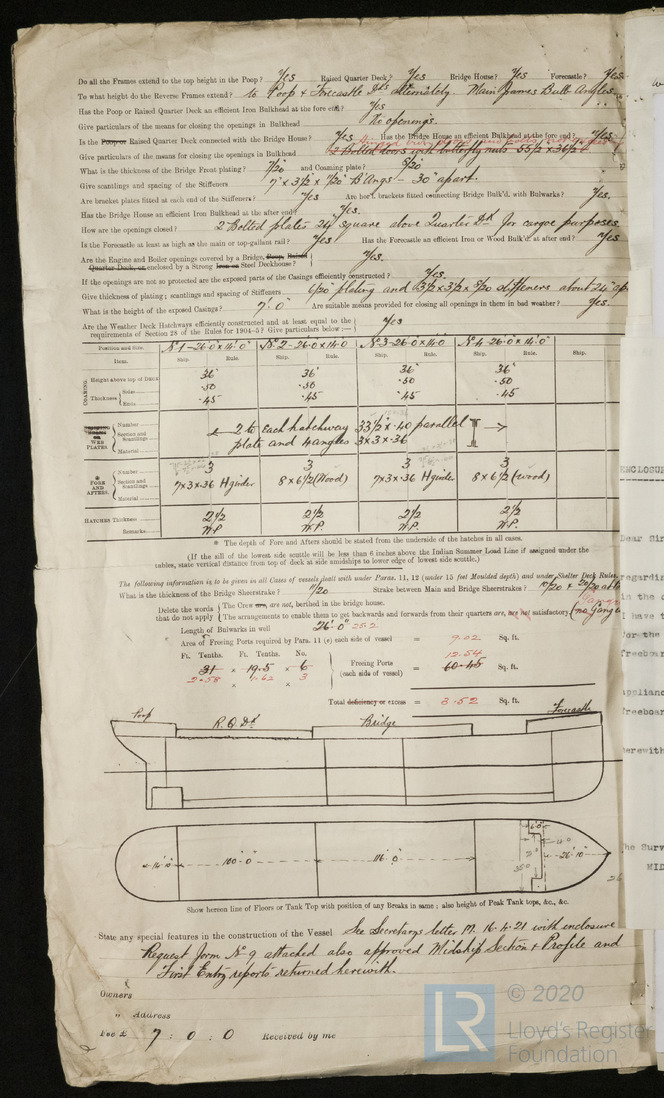 Do all the Frames extend to the top height in the Poop? Yes Raised Quarter Deck? Yes Bridge House? Yes Forecastle? Yes
To what height do the Reverse Frames extend? to Poop & Forecastle Dks alternately. Main frames Bulb Angles.
Has the Poop or Raised Quarter Deck an efficient Iron Bulkhead at the fore end? Yes
Give particulars of the means for closing the openings in Bulkhead No openings.
Is the Poop or Raised Quarter Deck connected with the Bridge House? Yes Has the Bridge House an efficient Bulkhead at the fore end? Yes
Give particulars of the means for closing the openings in Bulkhead 2 Bolted doors with butterfly nuts 53½ x 36½
What is the thickness of the Bridge Front plating? 7/20 and Coaming plate? 8/20
Give scantlings and spacing of the Stiffeners 7" x 3½ x 7/20 B Angs - 30" apart.
Are bracket plates fitted at each end of the Stiffeners? Yes Are hor'l. brackets fitted connecting Bridge Bulk'd, with Bulwarks? Yes.
Has the Bridge House an efficient Iron Bulkhead at the after end? Yes.
How are the openings closed? 2 Bolted plates 24" square above Quarter Dk for cargoe purposes
Is the Forecastle at least as high as the main or top-gallant rail? Yes Has the Forecastle an efficient Iron or Wood Bulk'd. at after end? Yes
Are the Engine and Boiler openings covered by a Bridge, Poop, Raised
Quarter Deck, or enclosed by a Strong Iron or Steel Deckhouse? Yes.
If the openings are not so protected are the exposed parts of the Casings efficiently constructed? Yes.
Give thickness of plating; scantlings and spacing of Stiffeners 6/20 plating and 3½ x 3½ x 8/20 stiffeners about 24" ap
What is the height of the exposed Casings? 7'. 0" Are suitable means provided for closing all openings in them in bad weather? Yes.
Are the Weather Deck Hatchways efficiently constructed and at least equal to the
requirements of Section 28 of the Rules for 1904-5? Give particulars below:— Yes
Position and Size. No 1-26.0 x 14.0 No 2-26.0 x 14.0 No 3-26.0 x 14.0 No 4-26.0 x 14.0
Item. Ship. Rule. Ship. Rule. Ship. Rule. Ship. Rule. Ship.
COAMING Height above top of Deck 36" 36" 36" 36"
Thickness Sides .50 .50 .50 .50
Ends .45 .45 .45 .45
WEB PLATES. Number
Section and Scantlings ← 2 to each hatchway 33½ x .40 parallel →
plate and 4 angles 3x3x.36
Material
* FORE AND AFTERS. Number 3 3 3 3
Section and Scantlings 7x3x.36 H girder 8 x 6½ (Wood) 7x3x.36 H girder 8 x 6½ (wood)
Material
HATCHES Thickness 2½ 2½ 2½ 2½
Remarks W.P. W.P. W.P. W.P.
* The depth of Fore and Afters should be stated from the underside of the hatches in all cases.
(If the sill of the lowest side scuttle will be less than 6 inches above the Indian Summer Load Line if assigned under the
tables, state vertical distance from top of deck at side amidships to lower edge of lowest side scuttle.)
The following information is to be given in all Cases of vessels dealt with under Paras. 11, 12 (under 15 feet Moulded depth) and under Shelter Deck Rules
What is the thickness of the Bridge Sheerstrake? 11/20 Strake between Main and Bridge Sheerstrakes? 11/20 &
Delete the words that do not apply
The Crew are, are not, berthed in the bridge house.
The arrangements to enable them to get backwards and forwards from their quarters are, are not satisfactory.
Length of Bulwarks in well 26'. 0" 25.2
Area of Freeing Ports required by Para. 11 (e) each side of vessel = 9.02 Sq. ft.
Ft. Tenths. Ft. Tenths. No.
31 x 19.5 x 6
2.58 x 1.62 x 3
Freeing Ports (each side of vessel) = 12.54 60.45 Sq. ft.
Total deficiency or excess = 3.52 Sq. ft.
Poop R.Q.Dk Bridge Forecastle
16'.10" 100'.0" 116'.0" 26'.10"
Show hereon line of Floors or Tank Top with position of any Breaks in same; also height of Peak Tank tops, &c., &c.
State any special features in the construction of the Vessel See Secretarys letter M. 16.4.21 with enclosure
Request form No 9 attached also approved Midship Section & Profile and
First Entry reports returned herewith.
Owners
" Address
Fee £ 7 : 0 : 0 Received by me
ENCLOSUR
Dear Sir
regardin
in the
have t
for the
freeboar
applianc
freeboar
herewith
The Surv
MID
© 2020
LR
Lloyd's Register
Foundation